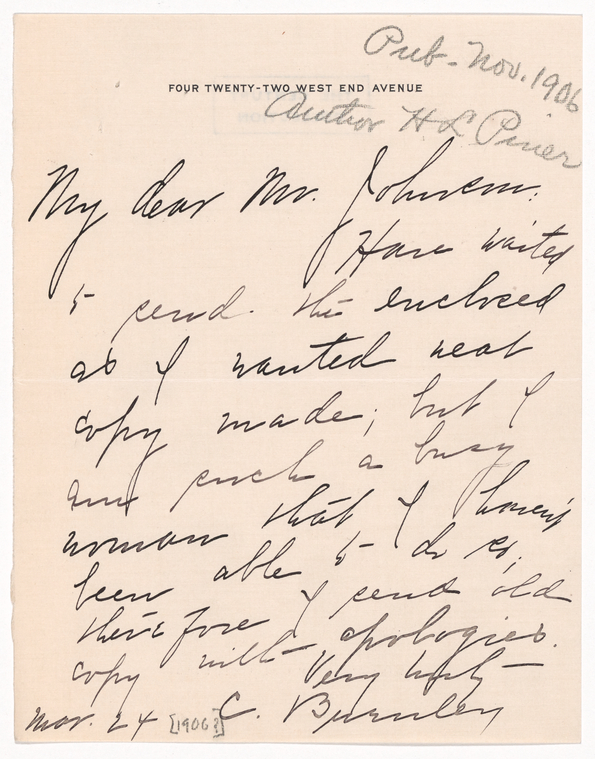 Pub - Nov. 1906
FOUR TWENTY-TWO WEST END AVENUE
Author H L Piner
My dear Mr. Johnson:
Have waited
to send the enclosed
as I wanted neat
copy made; but I
am such a busy
woman that I haven't
been able to do so,
therefore I send old
copy with apologies.
Very truly
Mar. 24 [1906?] C. Burnley